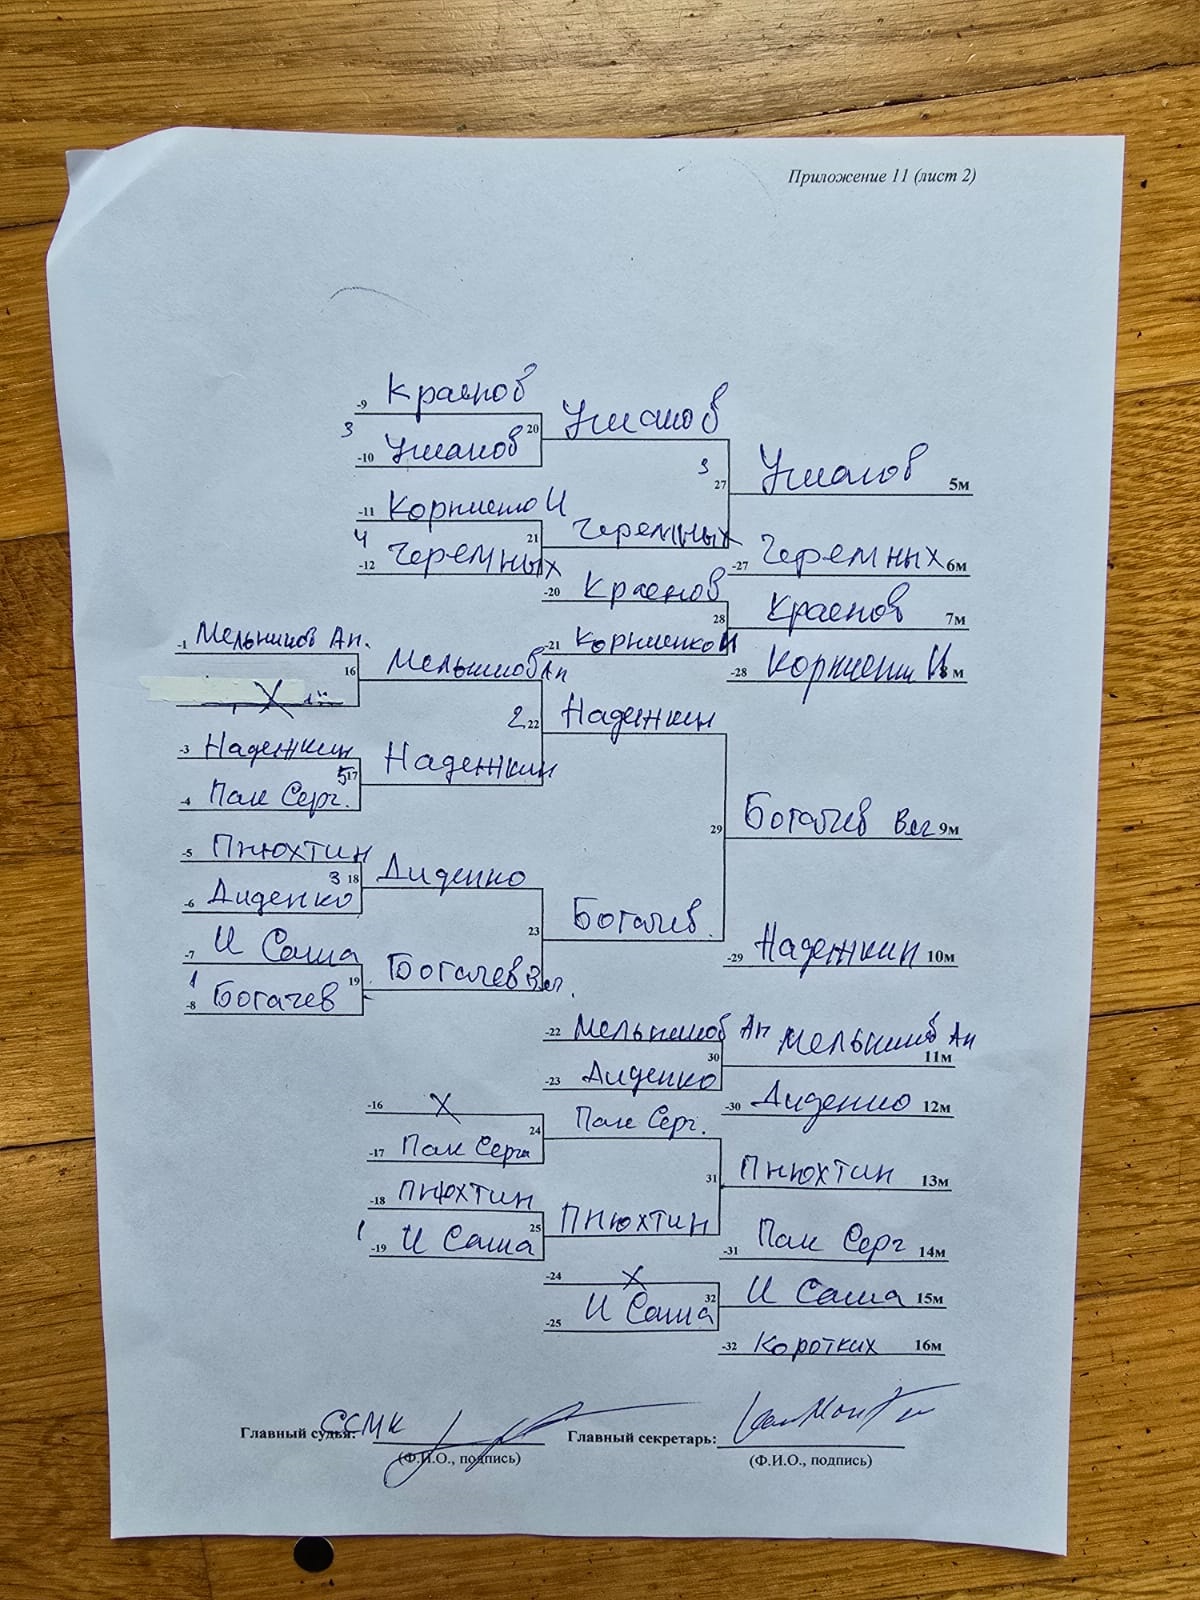 Приложение 11 (лист 2)
-9 Краснов
3
20 Уманов
-10 Уманов
3
27 Уманов 5м
-11 Корниенко И
4
21 Черемных
-12 Черемных
-27 Черемных 6м
-20 Краснов
28 Краснов 7м
-21 Корниенко И
-28 Корниенко И 8м
-1 Мельников Ан.
16 Мельников Ан
Х
2 22 Надежкин
-3 Надежкин
5 17 Надежкин
-4 Пак Серг.
29 Богачев Вяч 9м
-5 Пнюхтин
3 18 Диденко
-6 Диденко
23 Богачев.
-7 И Саша
1
19 Богачев Вяч.
-8 Богачев
-29 Надежкин 10м
-22 Мельников Ан
30 Мельников Ан 11м
-23 Диденко
-30 Диденко 12м
-16 Х
24 Пак Серг.
-17 Пак Серг
31 Пнюхтин 13м
-18 Пнюхтин
1
25 Пнюхтин
-19 И Саша
-31 Пак Серг 14м
-24 Х
32 И Саша 15м
-25 И Саша
-32 Коротких 16м
Главный судья: ССМК
Главный секретарь:
(Ф.И.О., подпись)
(Ф.И.О., подпись)